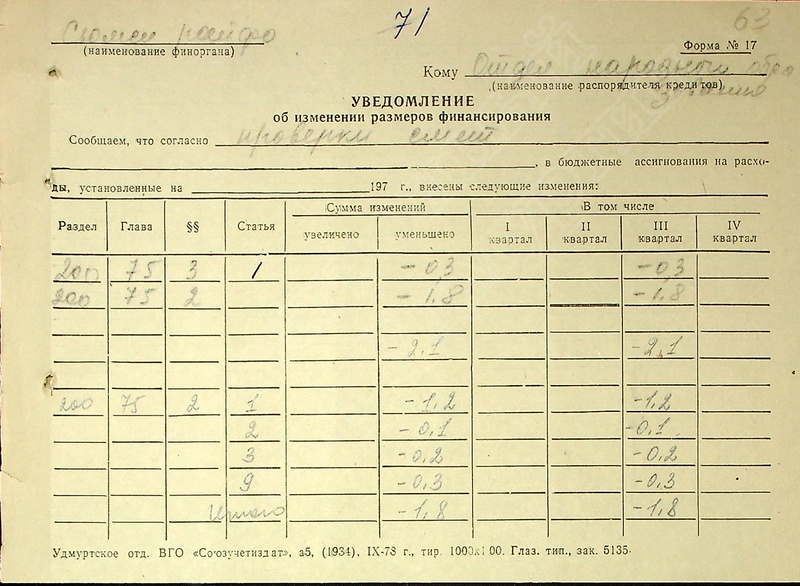 71
63
Сюмси райфо
(наименование финоргана)
Форма № 17
Кому Отдел народного обра
(наименование распорядителя кредитов)
зования
УВЕДОМЛЕНИЕ
об изменении размеров финансирования
Сообщаем, что согласно проверки смет
, в бюджетные ассигнования на расхо-
ды, установленные на 197 г., внесены следующие изменения:
Раздел Глава §§ Статья Сумма изменений В том числе
увеличено уменьшено I квартал II квартал III квартал IV квартал
200 75 3 1 -0,3 -0,3
200 75 2 -1,8 -1,8
-2,1 -2,1
200 75 2 1 -1,2 -1,2
2 -0,1 -0,1
3 -0,2 -0,2
9 -0,3 -0,3
Итого -1,8 -1,8
Удмуртское отд. ВГО «Союзучетиздат», а5, (1934), IX-78 г., тир. 1000х100. Глаз. тип., зак. 5135.